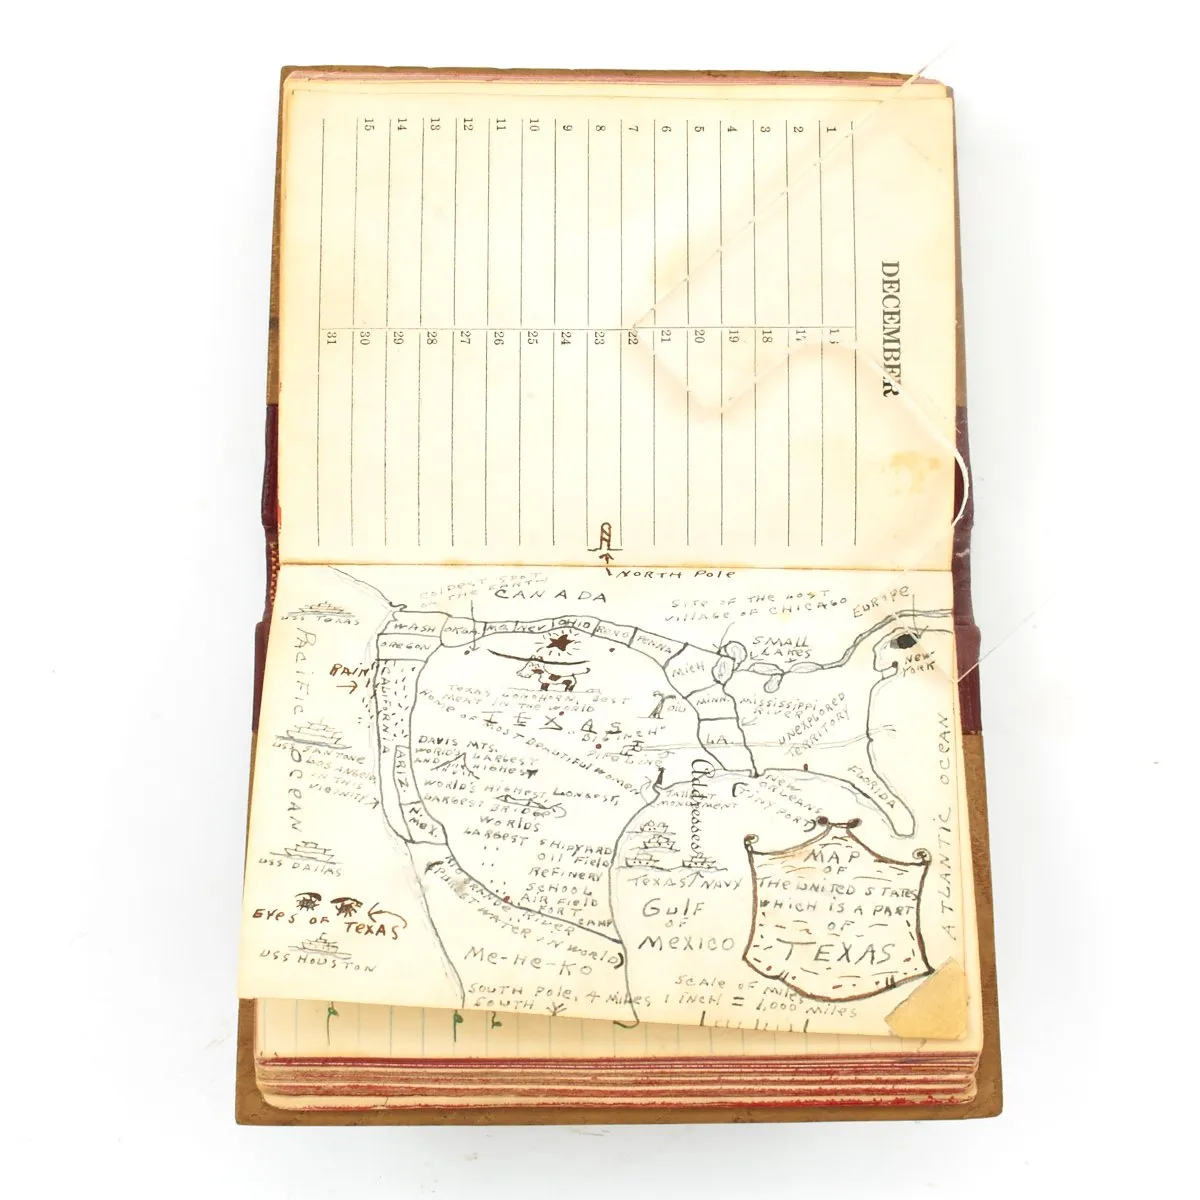 DECEMBER
1
2
3
4
5
6
7
8
9
10
11
12
13
14
15
17
18
19
20
21
22
23
24
25
26
27
28
29
30
31
NORTH POLE
COLDEST SPOT
ON THE EARTH
CANADA
SITE OF THE LOST
VILLAGE OF CHICAGO
EUROPE
USS TEXAS
WASH
OKLA.
MO.
NEV
OHIO
RENO
PENNA
OREGON
MICH
SMALL
LAKES
NEW-
YORK
PACIFIC OCEAN
RAIN
CALIFORNIA
ARIZ.
N. MEX.
TEXAS LONGHORN, BEST
MENT IN THE WORLD
HOME OF
TEXAS
MOST BEAUTIFUL WOMEN
OIL
MINN.
MISSISSIPPI
RIVER
UNEXPLORED
TERRITORY
LA.
"BIG INCH"
PIPE LINE
DAVIS MTS.
WORLD'S LARGEST
AND HIGHEST
USS SANTONE
LOS ANGELES
IN THIS
VICINITY
WORLD'S HIGHEST LONGEST,
LARGEST BRIDGE
TALLEST
MONUMENT
Addresses
NEW
ORLEANS
(TINY PORT)
FLORIDA
ATLANTIC OCEAN
WORLDS
LARGEST SHIPYARD
" OIL FIELD
REFINERY
" SCHOOL
AIR FIELD
" FORT
CAMP
USS DALLAS
TEXAS NAVY
MAP
OF
THE UNITED STATES
WHICH IS A PART
OF
TEXAS
RIO GRANDE RIVER
(PUREST WATER IN WORLD)
GULF
OF
MEXICO
EYES OF TEXAS
USS HOUSTON
ME-HE-KO
SOUTH POLE, 4 MILES
SOUTH
SCALE OF MILES
1 INCH = 1,000 MILES